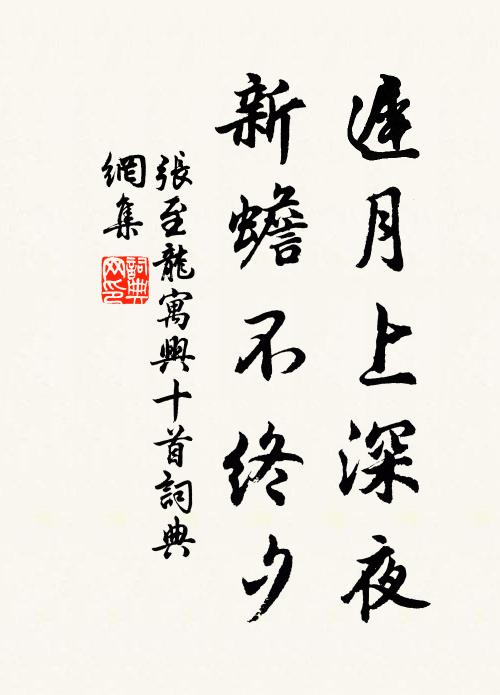 遲月上深夜
新蟾不終夕
張至龍寓興十首詞典
網集
詞典
网印